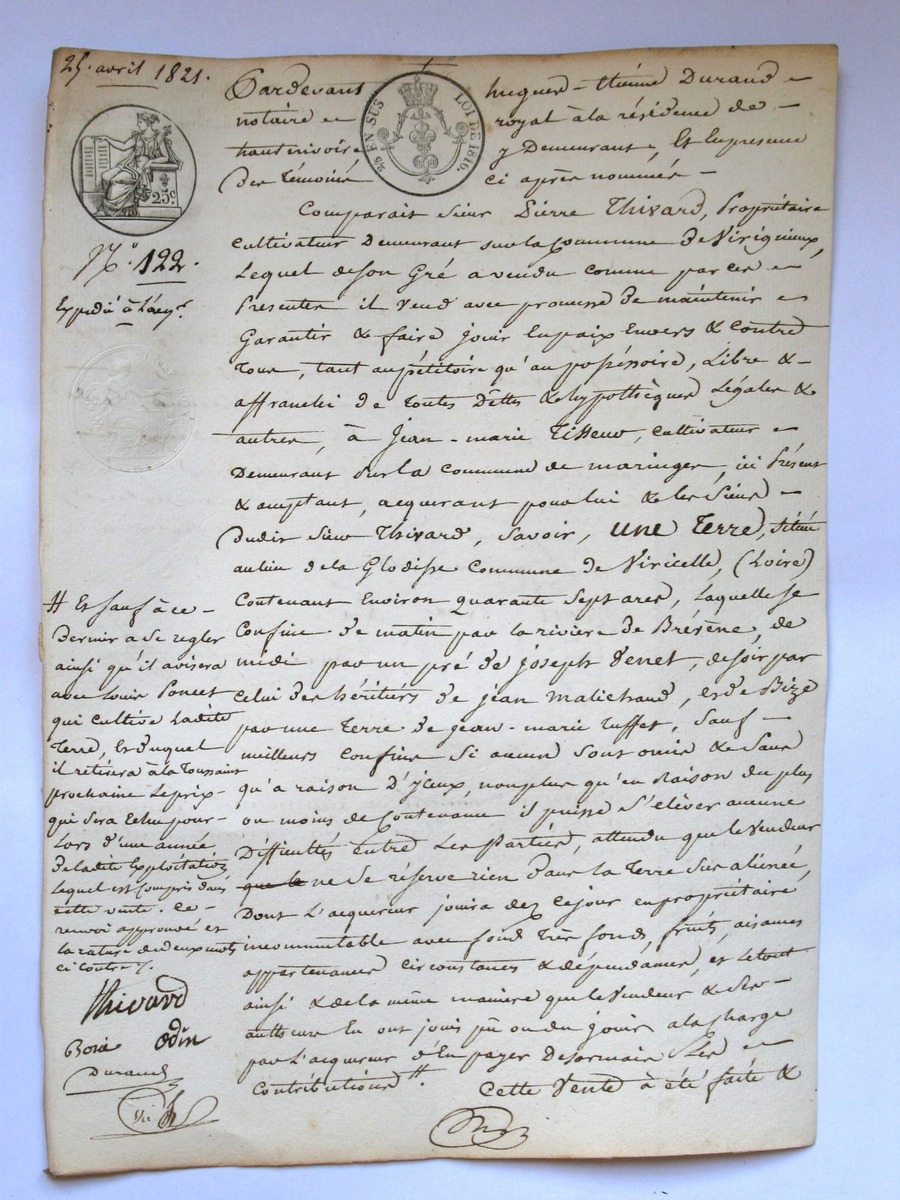 25. avril 1821.
Pardevant hugues-étienne Durand
notaire royal à la résidence de
hauterivoire y Demeurant, Et En presence
Des témoins ci après nommés
25 EN SUS LOI DE 1816.
25c.
N.° 122.
Expedié à l'acq.r
Comparait sieur Pierre Thivard, Propriétaire
cultivateur Demeurant sur la Commune de Virigneux,
Lequel de son Gré a vendu comme par ces
Presentes il vend avec promesse de maintenir
Garantir & faire jouir En paix Envers & contre
Tous, tant au pétitoire qu'au possessoire, Libre &
affranchi de toutes Dettes & hypothèques Légales &
autres, à Jean-marie Tisseur, cultivateur
Demeurant sur la commune de maringes, ici Présent
& acceptant, acquerant pour lui & les siens
Dudit sieur Thivard, savoir, une Terre, située
au lieu de la Commune de Viricelle, (Loire)
Contenant Environ quarante sept ares, Laquelle se
Confine de matin par la rivière de de
midi par un pré de joseph Venet, de soir par
celui des héritiers de jean Malichaud, et de Bize
par une terre de jean-marie sauf
meilleurs confins si aucuns sont omis & sans
qu'à raison D'yceux, non plus qu'en Raison du plus
ou moins de Contenance il puisse s'elèver aucune
Difficultés entre Les Parties, attendu que le vendeur
que le ne se réserve rien dans la terre sus alienée,
Dont L'acquereur jouira dez ce jour en propriétaire
incommutable avec fond très fond, fruits, aisances
appartenances circonstances & dépendances, et Le tout
ainsi & de la même manière que le vendeur & ses
autheurs En ont joui pû ou du jouir a la charge
par L'acquereur d'En payer Desormais Les
Contributions #. Cette Vente à été faite &
# Et sauf à ce
Dernier a se regler
ainsi qu'il avisera
avec Louis Poncet
qui cultive Ladite
Terre, Et duquel
il retirera à la toussaint
prochaine Le prix
qui sera Echu pour
Lors d'une année
de ladite Exploitation,
Lequel est compris dans
cette vente. ce
renvoi approuvé et
la rature de deux mots
ci contre /.
Thivard
odin
Durand